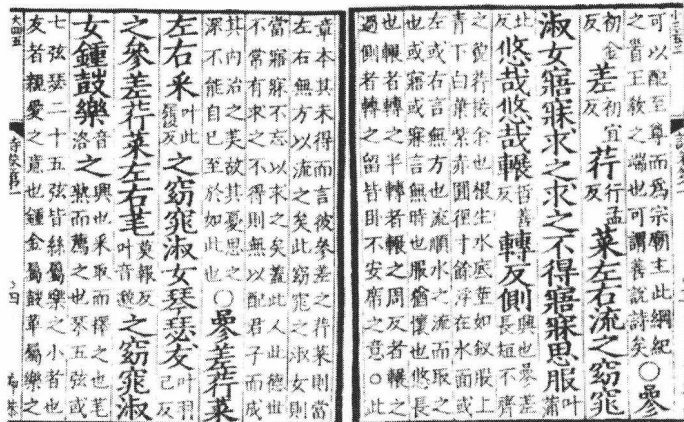 可以配至尊而爲宗廟主此綱紀
之首王敎之端也可謂善說詩矣〇參
初金反差初宜反荇行孟反菜左右流之窈窕
淑女寤寐求之求之不得寤寐思服叶蒲
北反悠哉悠哉輾哲善反轉反側興也參差長短不齊
之貌荇接余也根生水底莖如釵股上
青下白葉紫赤圓徑寸餘浮在水面或
左或右言無方也流順水之流而取之
也或寤或寐言無時也服猶懷也悠長
也輾者轉之半轉者輾之周反者輾之
過側者轉之留皆卧不安席之意〇此
章本其未得而言彼參差之荇菜則當
左右無方以流之矣此窈窕之淑女則
當寤寐不忘以求之矣蓋此人此德世
不常有求之不得則無以配君子而成
其內治之美故其憂思之
深不能自已至於如此也〇參差荇菜
左右采叶此履反之窈窕淑女琴瑟友叶羽已反
之參差荇菜左右芼莫報反叶音邈之窈窕淑
女鍾鼓樂音洛之興也采取而擇之也芼
熟而薦之也琴五弦或
七弦瑟二十五弦皆絲屬樂之小者也
友者親愛之意也鍾金屬鼓革屬樂之
大四五
詩卷第一
四